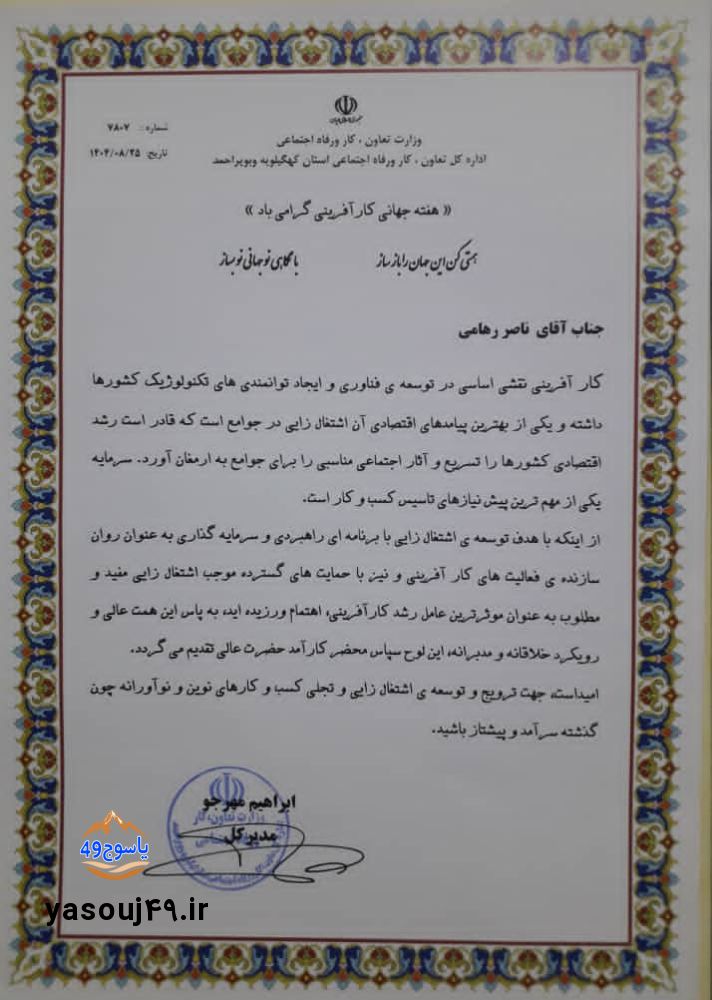 جمهوری اسلامی ایران
شماره: ۷۸۰۷
وزارت تعاون ، کار ورفاه اجتماعی
تاریخ: ۱۴۰۴/۰۸/۲۵
اداره کل تعاون ، کار ورفاه اجتماعی استان کهگیلویه وبویراحمد
« هفته جهانی کارآفرینی گرامی باد »
همتی کن این جهان را باز ساز با نگاهی نو جهانی نو بساز
جناب آقای ناصر رهامی
کار آفرینی نقشی اساسی در توسعه ی فناوری و ایجاد توانمندی های تکنولوژیک کشورها
داشته و یکی از بهترین پیامدهای اقتصادی آن اشتغال زایی در جوامع است که قادر است رشد
اقتصادی کشورها را تسریع و آثار اجتماعی مناسبی را برای جوامع به ارمغان آورد. سرمایه
یکی از مهم ترین پیش نیازهای تاسیس کسب و کار است.
از اینکه با هدف توسعه ی اشتغال زایی با برنامه ای راهبردی و سرمایه گذاری به عنوان روان
سازنده ی فعالیت های کار آفرینی و نیز با حمایت های گسترده موجب اشتغال زایی مفید و
مطلوب به عنوان موثرترین عامل رشد کارآفرینی، اهتمام ورزیده اید، به پاس این همت عالی و
رویکرد خلاقانه و مدبرانه، این لوح سپاس محضر کارآمد حضرت عالی تقدیم می گردد.
امیداست، جهت ترویج و توسعه ی اشتغال زایی و تجلی کسب و کارهای نوین و نوآورانه چون
گذشته سرآمد و پیشتاز باشید.
ابراهیم مهرجو
مدیرکل
وزارت تعاون، کار
یاسوج49
yasouj۴۹.ir